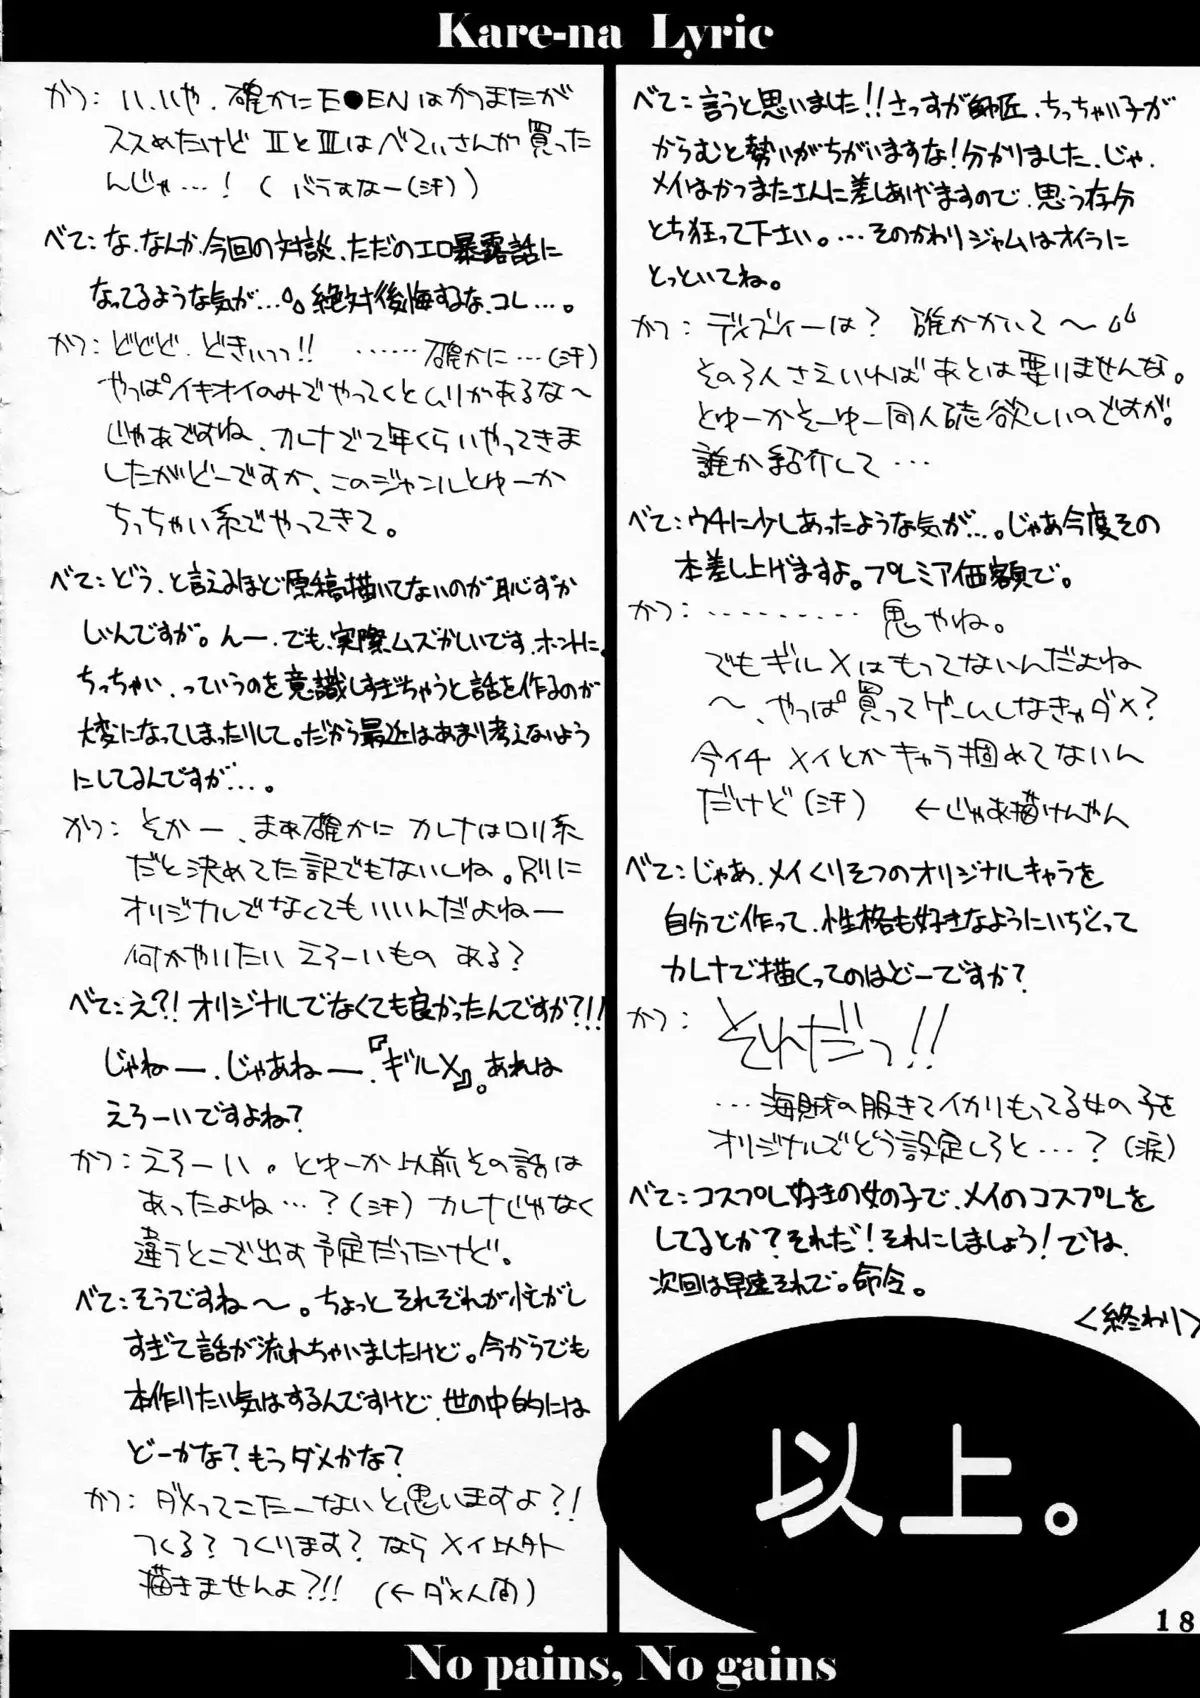 Kare-na Lyric
かつ: い、いや、確かにE●ENはかつまたが
ススめたけど ⅡとⅢはべてぃさんが買った
んじゃ…! (バラすなー(汗))
べて: な、なんか、今回の対談、ただのエロ暴露話に
なってるような気が…。絶対後悔するな、コレ…。
かつ: どどど、どきぃっっ!! ……確かに…(汗)
やっぱイキオイのみでやってくとムリがあるな〜
じゃあですね、カレナでて年くらいやってきま
したがどーですか、このジャンルとゆーか
ちっちゃい系でやってきて。
べて: どう、と言えるほど原稿描いてないのが恥ずか
しいんですが。んー、でも、実際ムズかしいです、ホントに。
ちっちゃい、っていうのを意識しすぎちゃうと話を作るのが
大変になってしまったりして。だから最近はあまり考えないよう
にしてるんですが…。
かつ: そかー、まぁ確かに カレナはロリ系
だと決めてた訳でもないしね。別に
オリジナルでなくてもいいんだよねー
何かやりたい えろーいもの ある?
べて: え?! オリジナルでなくても良かったんですか?!!
じゃねー、じゃあねー、『ギルX』。あれは
えろーいですよね?
かつ: えろーい。とゆーか以前その話は
あったよね…?(汗) カレナじゃなく
違うとこで出す予定だったけど。
べて: そうですね〜。ちょっとそれぞれが忙がし
すぎて話が流れちゃいましたけど。今からでも
本作りたい気はするんですけど、世の中的には
どーかな?もうダメかな?
かつ: ダメってこたーないと思いますよ?!
つくる?つくります?なら メイ以外
描きませんよ?!! (←ダメ人間)
べて: 言うと思いました!!さっすが師匠、ちっちゃい子が
からむと勢いがちがいますな!分かりました、じゃ、
メイはかつまたさんに差しあげますので、思う存分
とち狂って下さい。…そのかわりジャムはオイラに
とっといてね。
かつ: ディズィーは? 確かかいて〜
その3人さえいればあとは要りませんな。
とゆーかそーゆー同人誌欲しいのですが。
誰か紹介して…
べて: ウチに少しあったような気が…。じゃあ今度その
本差し上げますよ。プレミア価額で。
かつ: ………… 鬼やね。
でもギルXはもってないんだよね
〜、やっぱ買ってゲームしなきゃダメ?
今イチ メイとかキャラ掴めてないん
だけど(汗) ←じゃあ描けんやん
べて: じゃあ、メイくりそつのオリジナルキャラを
自分で作って、性格も好きなようにいぢくって
カレナで描くってのはどーですか?
かつ: それだっ!!
…海賊の服きてイカリもってる女の子を
オリジナルでどう設定しろと…?(涙)
べて: コスプレ好きの女の子で、メイのコスプレを
してるとか?それだ!それにしましょう!では、
次回は早速それで。命令。
<終わり>
以上。
18
No pains, No gains